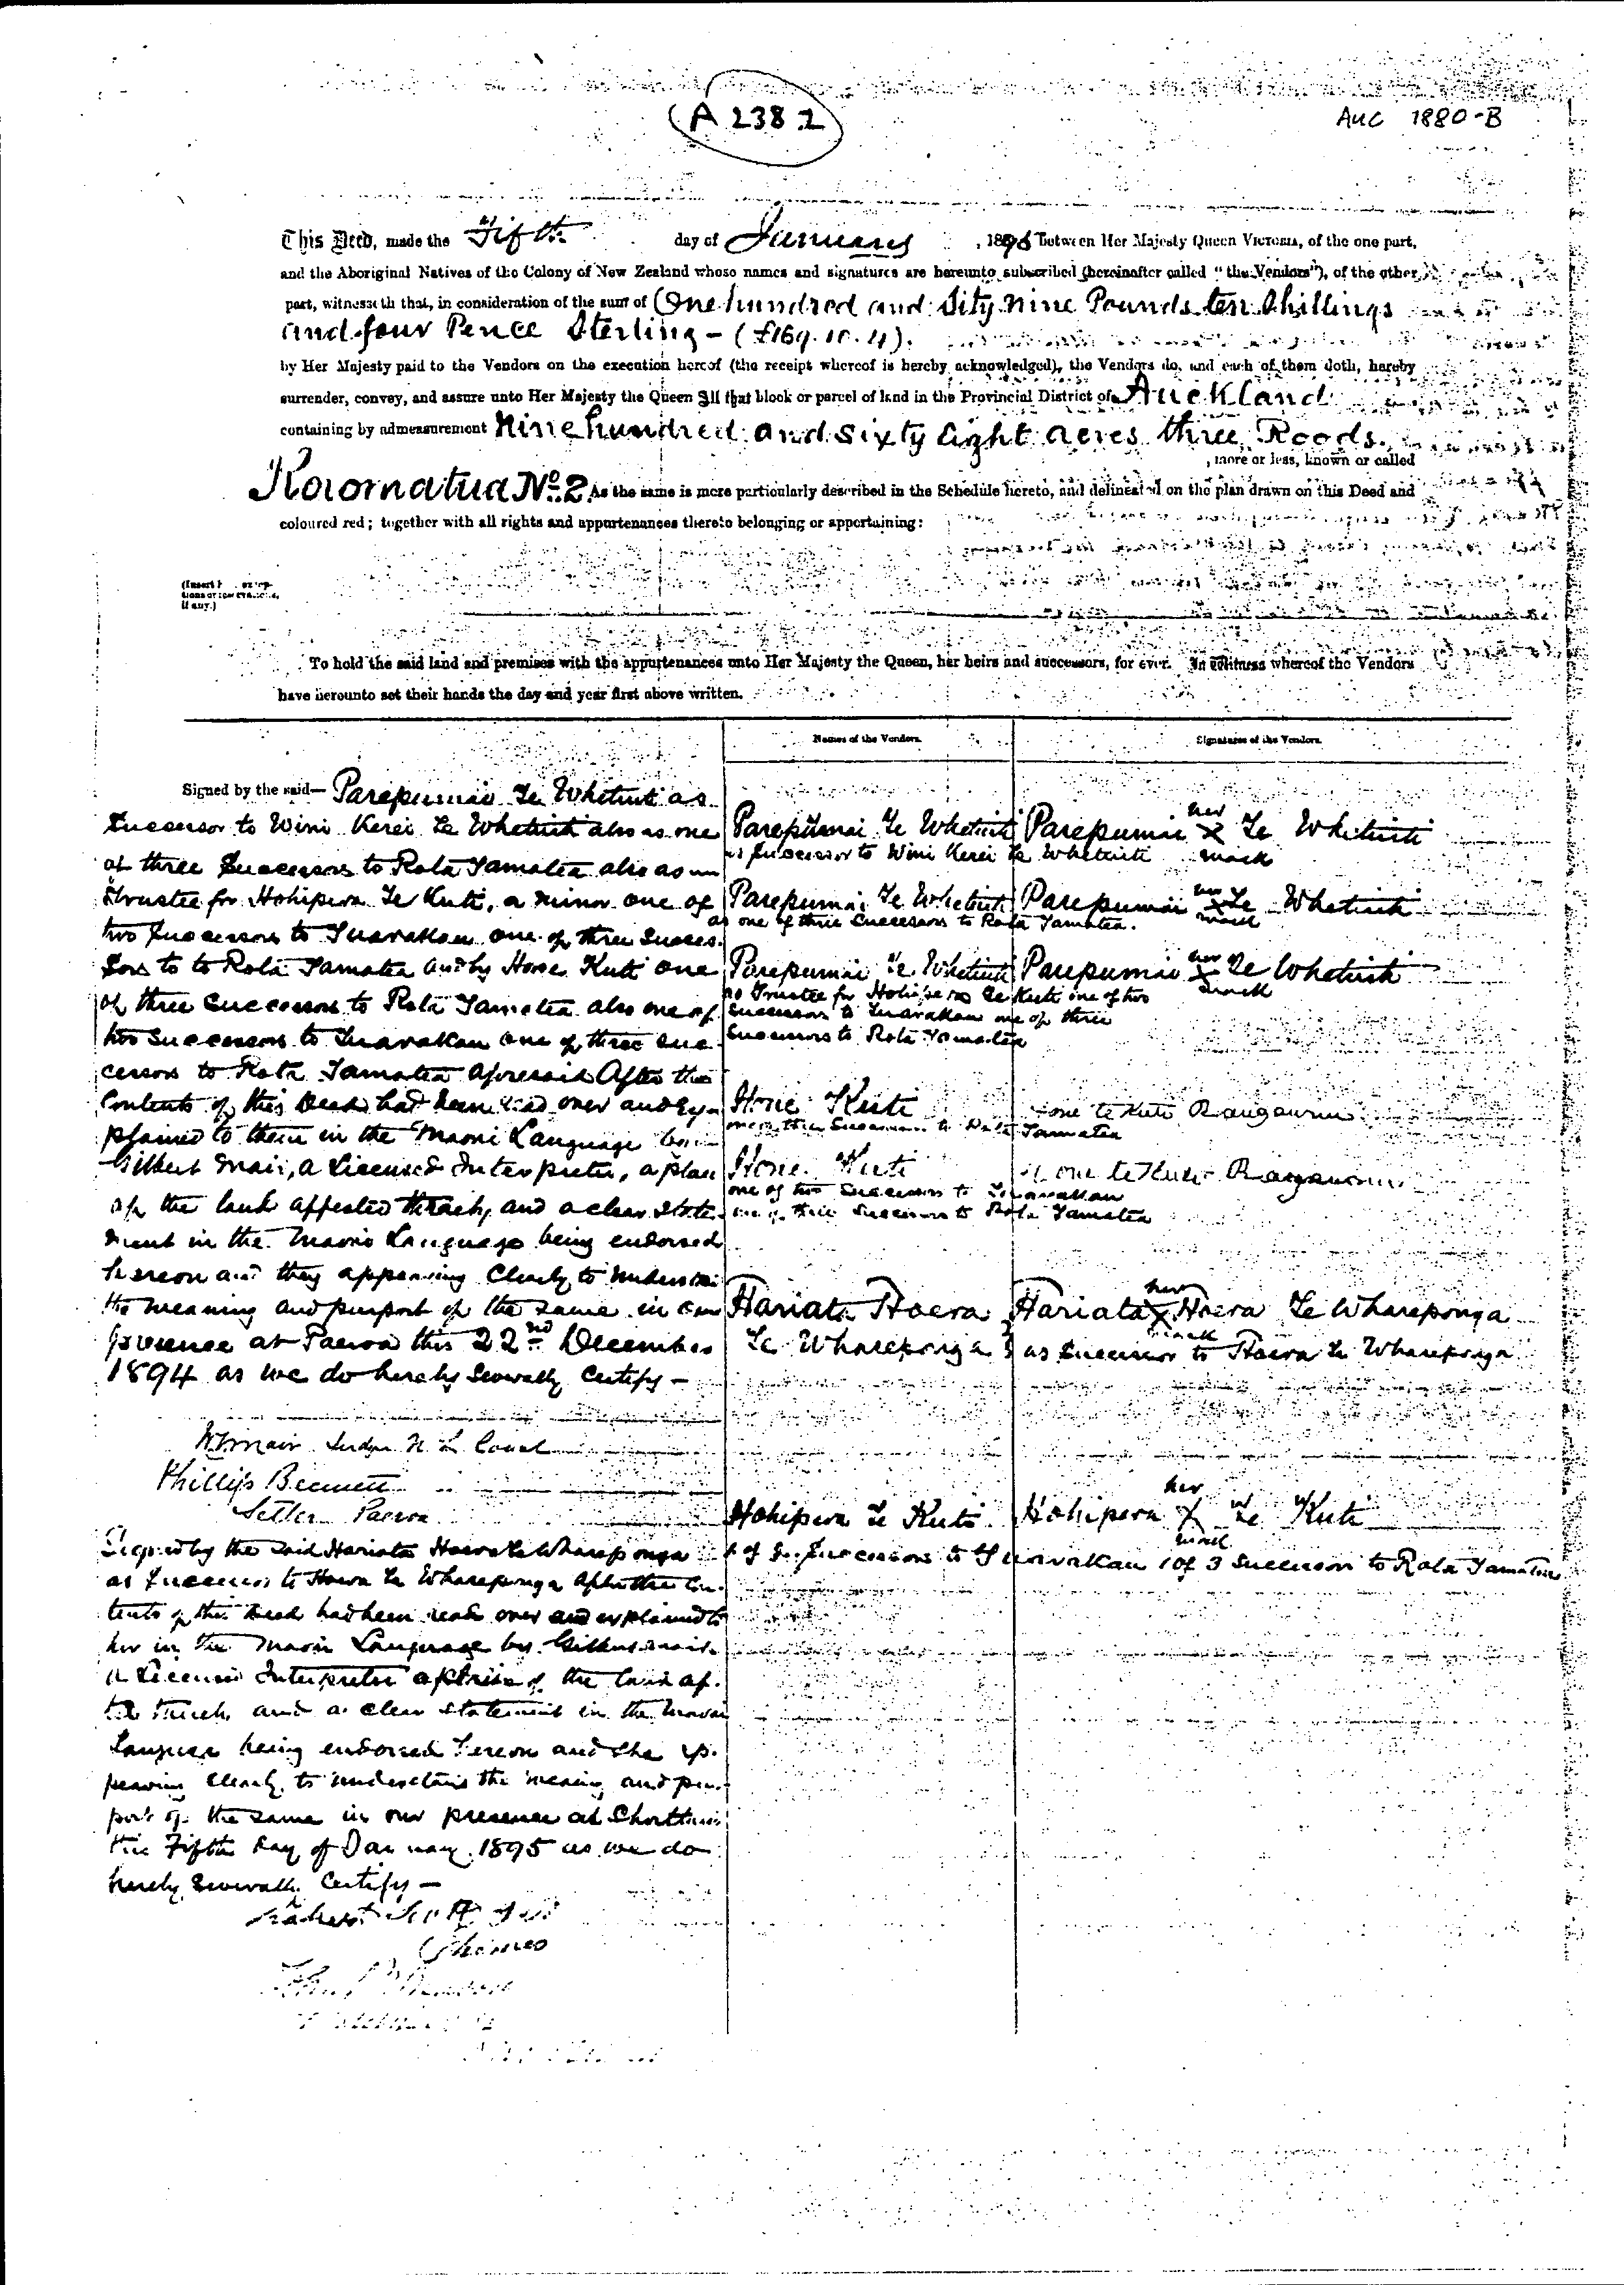 A 238.2
AUC 1880-B
This Deed, made the Fifth day of January, 1895 between Her Majesty Queen Victoria, of the one part,
and the Aboriginal Natives of the Colony of New Zealand whose names and signatures are hereunto subscribed (hereinafter called "the Vendors"), of the other
part, witnesseth that, in consideration of the sum of One hundred and Sity nine Pounds ten Shillings
and four Pence Sterling - (£169.10.4).
by Her Majesty paid to the Vendors on the execution hereof (the receipt whereof is hereby acknowledged), the Vendors do, and each of them doth, hereby
surrender, convey, and assure unto Her Majesty the Queen All that block or parcel of land in the Provincial District of Auckland
containing by admeasurement Nine hundred and sixty eight acres three Roods.
, more or less, known or called
No. 2 As the same is more particularly described in the Schedule hereto, and delineated on the plan drawn on this Deed and
coloured red; together with all rights and appurtenances thereto belonging or appertaining:
(Insert
tions or reservations,
if any.)
To hold the said land and premises with the appurtenances unto Her Majesty the Queen, her heirs and successors, for ever. In Witness whereof the Vendors
have hereunto set their hands the day and year first above written.
Names of the Vendors.
Signatures of the Vendors.
Signed by the said— Parepumai Te Whetuiti as
Successor to Wini Kerei Te Whetuiti also as one
of three Successors to Rota Tamatea also as
Trustee for Hohipera Te Kuti, a minor one of
two Successors to Tuarakau one of three Succes-
sors to to Rota Tamatea and by Hone Kuti one
of three Successors to Rota Tamatea also one of
two Successors to Tuarakau one of three suc
cessors to Rota Tamatea aforesaid After the
Contents of this Deed had been read over and ex
plained to them in the Maori Language by
Gilbert Mair, a Licensed Interpreter, a plan
of the land affected thereby and a clear state
ment in the Maori Language being endorsed
hereon and they appearing Clearly to understand
the meaning and purport of the same in our
presence at Paeroa this 22nd December
1894 as we do hereby Severally Certify -
W G Mair Judge N L Court
Phillip Bennett
Settler Paeroa
Signed by the said Hariata Hoera Te Whareponga
as Successor to Hoera Te Whareponga after the Con-
tents of this Deed had been read over and explained to
her in the Maori Language by Gilbert Mair
a Licensed Interpreter a plan of the land af-
thereby and a clear statement in the Maori
Language being endorsed hereon and she ap-
pearing Clearly to understand the meaning and pur-
port of the same in our presence at Shortland
this Fifth day of January 1895 as we do
hereby Severally Certify -
Thames
Parepumai Te Whetuiti
as Successor to Wini Kerei Te Whetuiti
Parepumai her X mark Te Whetuiti
Parepumai Te Whetuiti
as one of three Successors to Rota Tamatea.
Parepumai her X mark Te Whetuiti
Parepumai Te Whetuiti
as Trustee for Hohipera Te Kuti one of two
Successors to Tuarakau one of three
Successors to Rota Tamatea
Parepumai her X mark Te Whetuiti
Hone Kuti
one of three Successors to Rota Tamatea
Hone te Kuti
Hone Kuti
one of two Successors to Tuarakau
one of three Successors to Rota Tamatea
Hone te Kuti
Hariata Hoera
Te Whareponga
Hariata her X mark Hoera Te Whareponga
as Successor to Hoera Te Whareponga
Hohipera Te Kuti
Hohipera her X mark Te Kuti
1 of 2 Successors to Tuarakau 1 of 3 Successors to Rota Tamatea